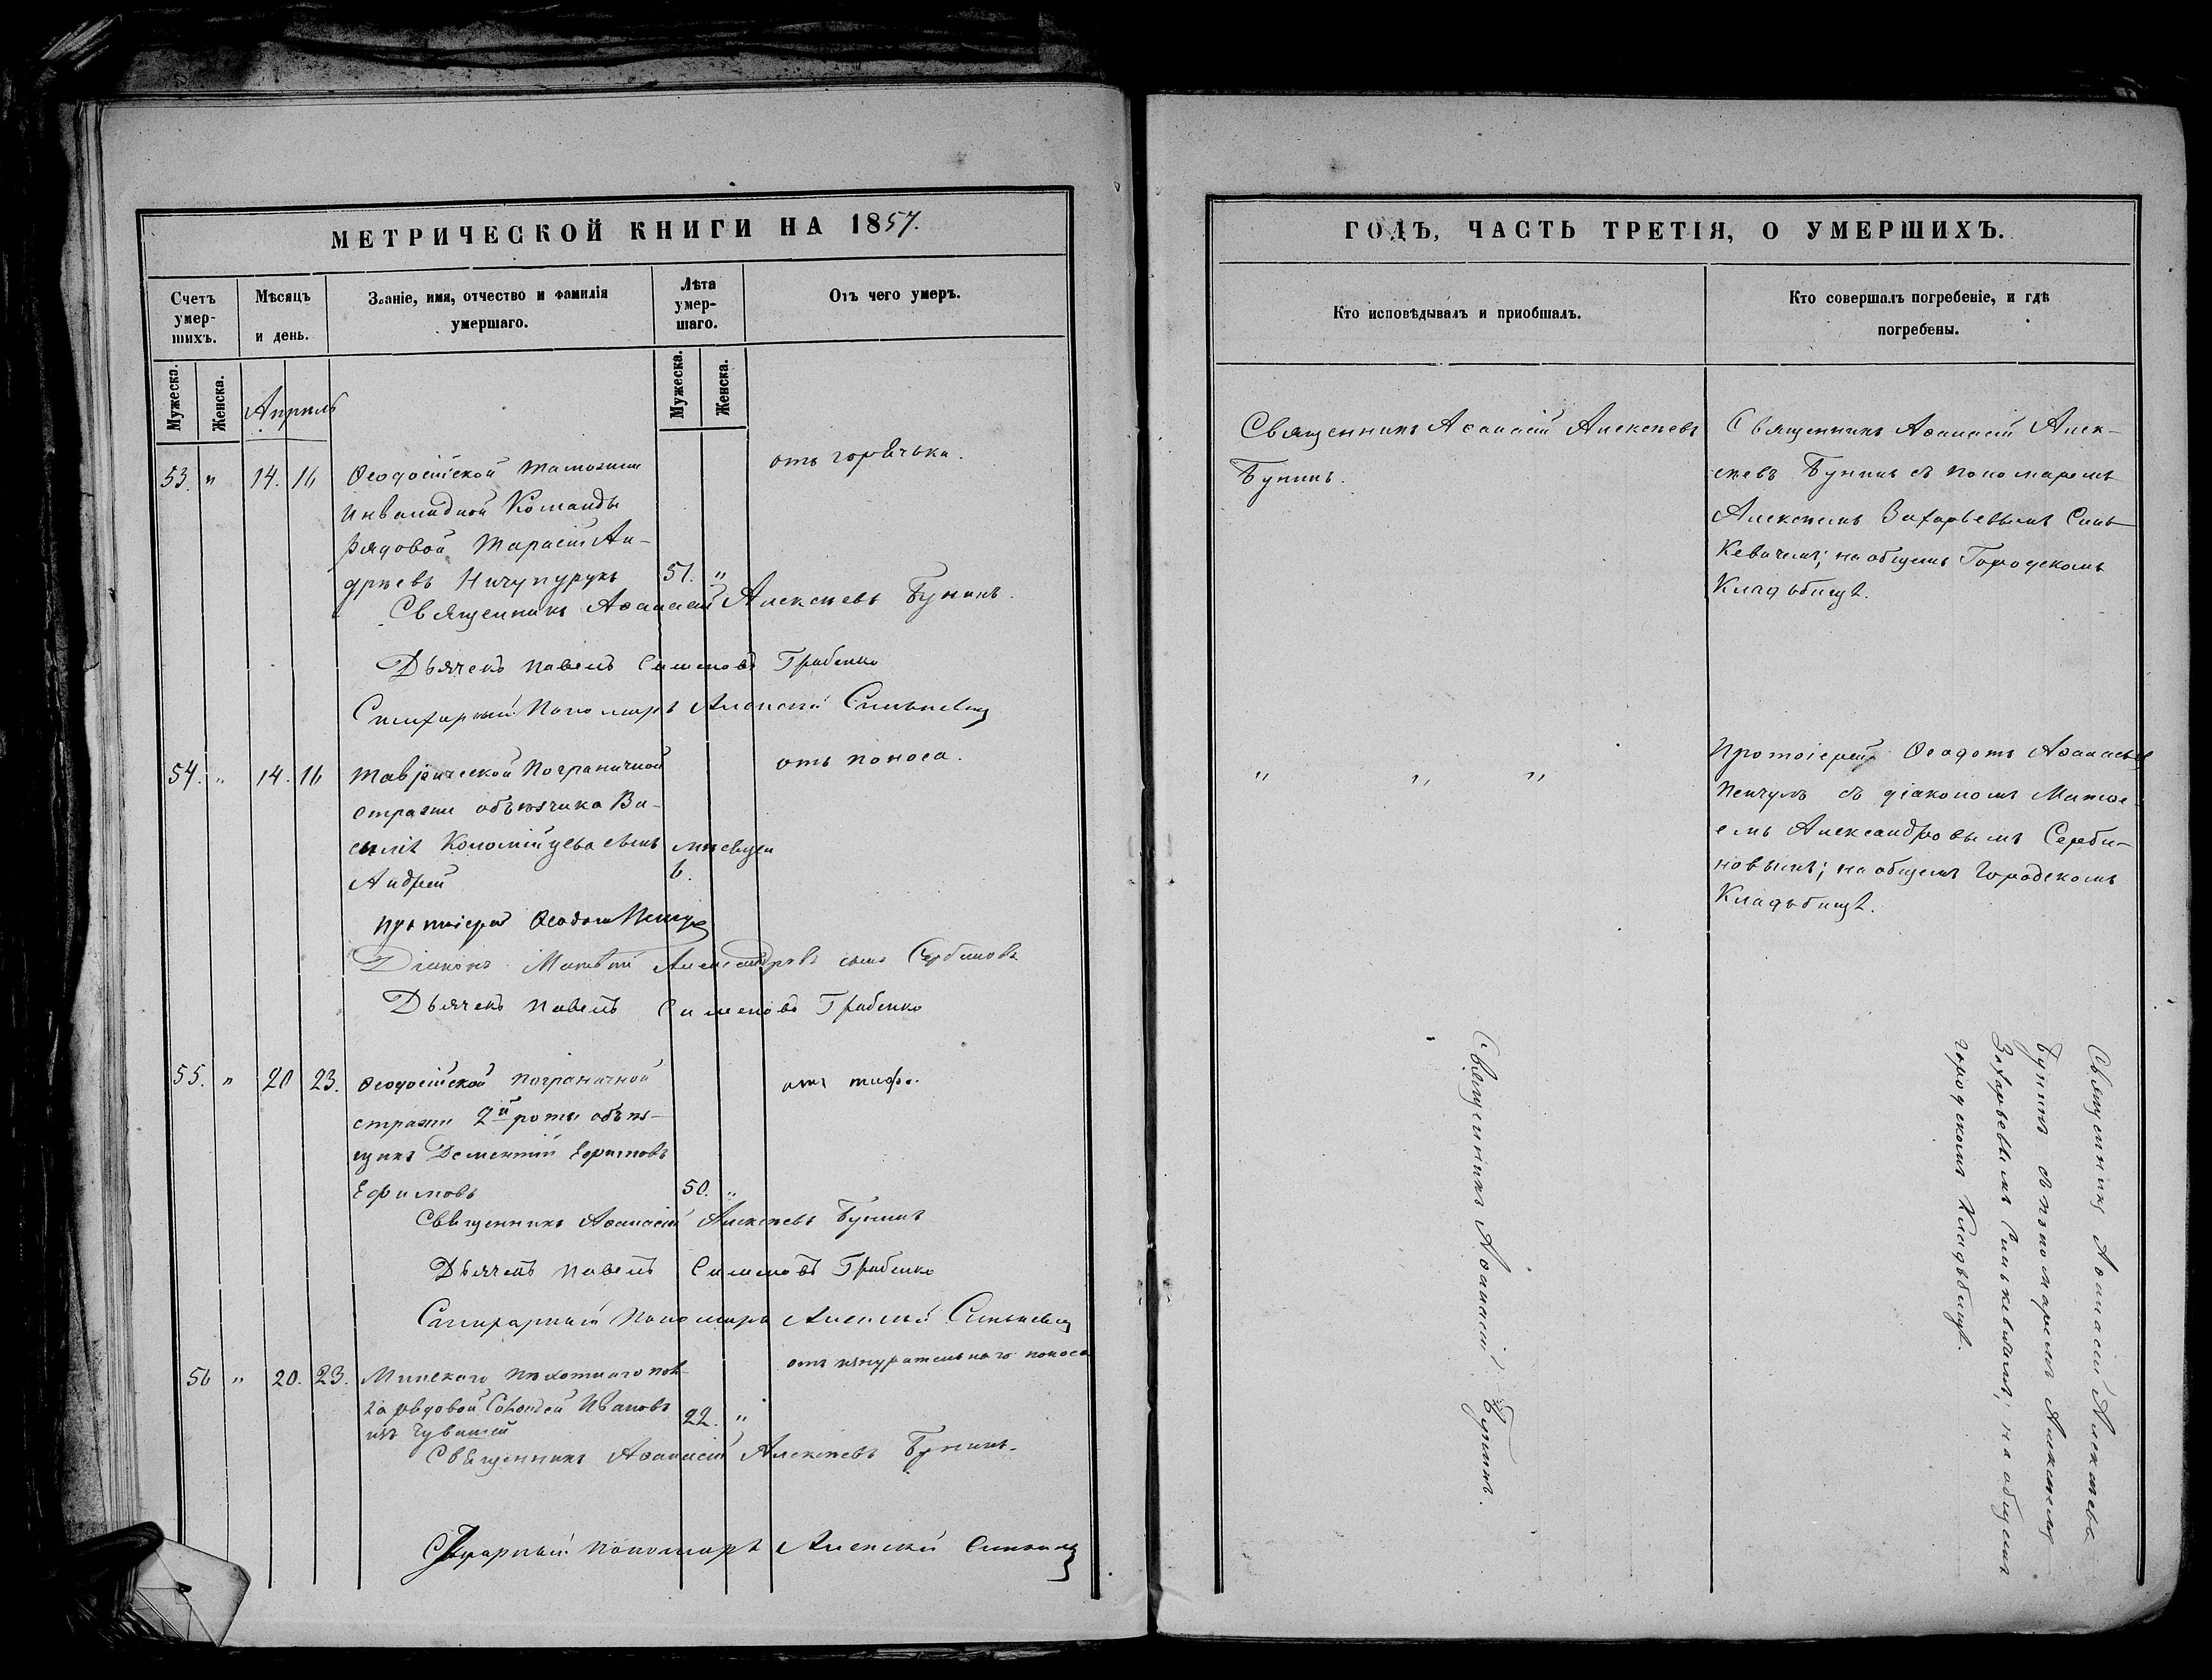 МЕТРИЧЕСКОЙ КНИГИ НА 1857.
Счетъ умер-шихъ.
Мѣсяцъ и день.
Званіе, имя, отчество и фамилія умершаго.
Лѣта умер-шаго.
Отъ чего умеръ.
Мужеска.
Женска.
Апрель
Мужеска.
Женска.
53. " 14. 16 Ѳеодосійской таможни отъ горячька.
инвалидной Команды
рядовой Тарасій Ан-
дреевъ 51. "
Священникъ Аѳанасій Алексѣевъ Бунинъ.
Дьячекъ Павелъ Симеоновъ Грабенко
Пономарь Алексѣй Синькевич
54. " 14. 16 Таврической Пограничной отъ поноса.
стражи объѣзчика Ва-
силія Коломійцева сынъ мѣсецен
Андрей 6.
протоіерей Ѳеодотъ
Діаконъ Матѳей Александровъ сынъ Сербиновъ
Дьячекъ Павелъ Симеоновъ Грабенко
55. " 20 23. Ѳеодосійской пограничной отъ тифа.
стражи 2й роты объѣз-
щикъ Дементій Ефимовъ
Ефимовъ 50. "
Священникъ Аѳанасій Алексѣевъ Бунинъ
Дьячекъ Павелъ Симеоновъ Грабенко
Пономарь Алексѣй Синькевич
56 " 20. 23. Минскаго пѣхотнаго пол- отъ изнурительнаго поноса
ка рядовой Ивановъ 22. "
изъ Чувашей
Священникъ Аѳанасій Алексѣевъ Бунинъ.
пономарь Алексѣй
ГОДЪ, ЧАСТЬ ТРЕТІЯ, О УМЕРШИХЪ.
Кто исповѣдывалъ и пріобщалъ.
Кто совершалъ погребеніе, и гдѣ погребены.
Священникъ Аѳанасій Алексѣевъ
Бунинъ.
Священникъ Аѳанасій Алек-
сѣевъ Бунинъ съ пономаремъ
Алексѣемъ Захарьевымъ Синь-
кевичемъ; на общемъ Городскомъ
Кладбищѣ.
" " "
Протоіерей Ѳеодотъ Аѳанасьев
съ діакономъ Матѳе-
емъ Александровымъ Серби-
новымъ; на общемъ Городскомъ
Кладбищѣ.
Священникъ Аѳанасій Бунинъ.
Священникъ Аѳанасій Алексѣевъ
Бунинъ съ пономаремъ Алексѣемъ
Захарьевымъ Синькевичемъ; на общемъ
городскомъ Кладбищѣ.